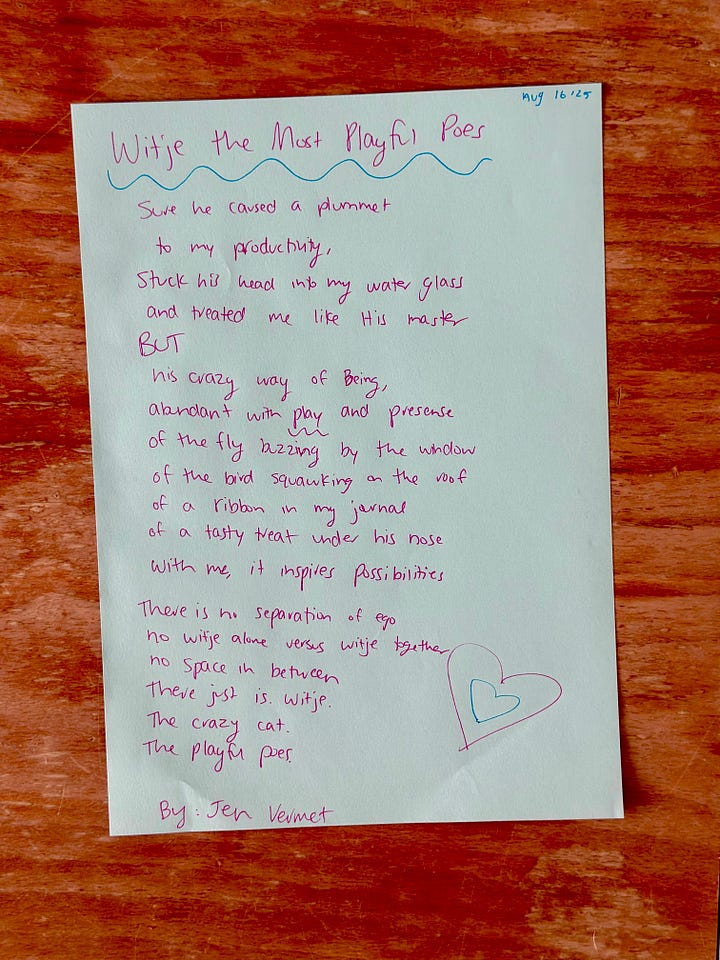 Aug 16 '25
Witje the Most Playful Poes
Sure he caused a plummet
to my productivity,
Stuck his head into my water glass
and treated me like His master
BUT
his crazy way of Being,
abundant with play and presense
of the fly buzzing by the window
of the bird squawking on the roof
of a ribbon in my journal
of a tasty treat under his nose
with me, it inspires possibilities
There is no separation of ego
no witje alone versus witje together
no space in between
There just is. Witje.
The crazy cat.
The playful poes.
By: Jen Vermet